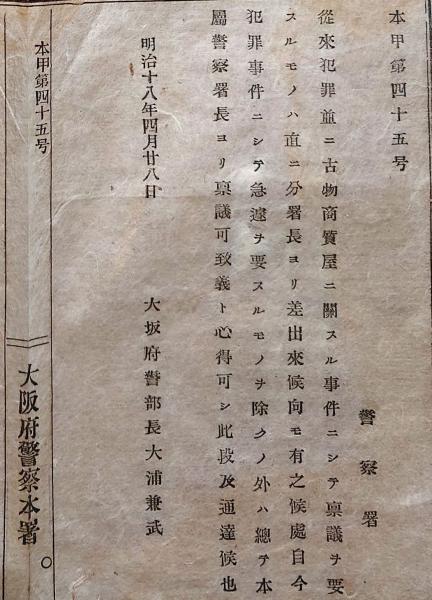 本甲第四十五号
警察署
從來犯罪並ニ古物商質屋ニ關スル事件ニシテ禀議ヲ要
スルモノハ直ニ分署長ヨリ差出來候向モ有之候處自今
犯罪事件ニシテ急遽ヲ要スルモノヲ除クノ外ハ總テ本
屬警察署長ヨリ禀議可致義ト心得可シ此段及通達候也
明治十八年四月廿八日
大坂府警部長大浦兼武
本甲第四十五号
大阪府警察本署